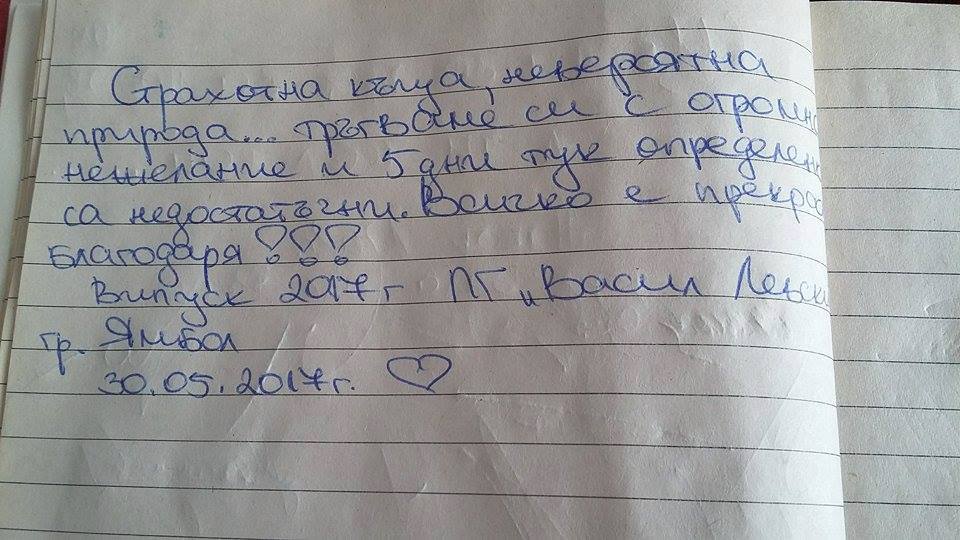 Страхотна къща, невероятна
природа... тръгваме си с огромно
нежелание и 5 дни тук определен
са недостатъчни. Всичко е прекрас
Благодаря!!!
Випуск 2017г ПГ „Васил Левски
гр. Ямбол
30.05.2017г.